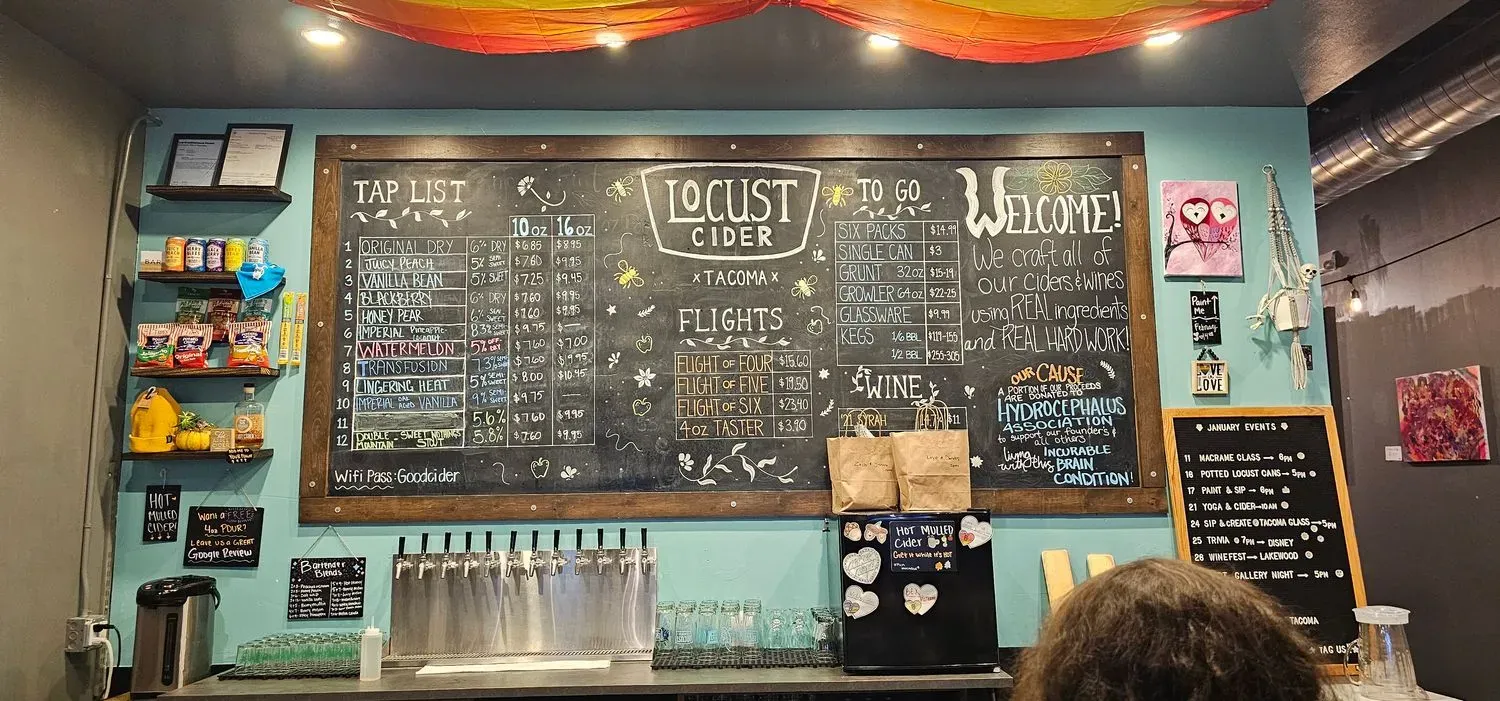 TAP LIST
10 oz 16 oz
1 ORIGINAL DRY 6% DRY $6.85 $8.95
2 JUICY PEACH 5% SEMI SWEET $7.60 $9.95
3 VANILLA BEAN 5% SWEET $7.25 $9.45
4 BLACKBERRY 6% DRY $7.60 $9.95
5 HONEY PEAR 6% SEMI SWEET $7.60 $9.95
6 IMPERIAL Pineapple Coconut 8.3% $9.75 —
7 WATERMELON 5% OFF DRY $7.60
8 TRANSFUSION $7.60 $9.95
9 LINGERING HEAT 5% SEMI SWEET $8.00 $10.45
10 IMPERIAL OAK AGED VANILLA 9% SWEET $9.75 —
11 5.6% $7.60 $9.95
12 DOUBLE MOUNTAIN - SWEET NOTHINGS STOUT 5.8% $7.60 $9.95
Wifi Pass: Goodcider
LOCUST
CIDER
x TACOMA x
FLIGHTS
FLIGHT OF FOUR $15.60
FLIGHT OF FIVE $19.50
FLIGHT OF SIX $23.40
4oz TASTER $3.90
TO GO
SIX PACKS $14.99
SINGLE CAN $3
GRUNT 32oz $15-19
GROWLER 64oz $22-25
GLASSWARE $9.99
KEGS 1/6 BBL $119-155
1/2 BBL $255-305
WINE
21 SYRAH $11
WELCOME!
We craft all of
our ciders & wines
using REAL ingredients
and REAL HARD WORK!
OUR CAUSE
A PORTION OF OUR PROCEEDS
ARE DONATED TO
HYDROCEPHALUS
ASSOCIATION
to support our founders &
all others
living with this INCURABLE
BRAIN
CONDITION!
HOT
MULLED
CIDER!
Want a FREE
4oz POUR?
LEAVE US A GREAT
Google Review
Bartender
Blends
HOT MULLED
Cider
Get it while it's HOT
Paint
Me
February
LOVE
LOVE
JANUARY EVENTS
11 MACRAME CLASS → 6PM
16 POTTED LOCUST CANS → 5PM
17 PAINT & SIP → 6PM
21 YOGA & CIDER → 10AM
24 SIP & CREATE @ TACOMA GLASS → 5PM
25 TRIVIA @ 7PM → DISNEY
28 WINEFEST → LAKEWOOD
GALLERY NIGHT → 5PM
TACOMA
TAG US
Original